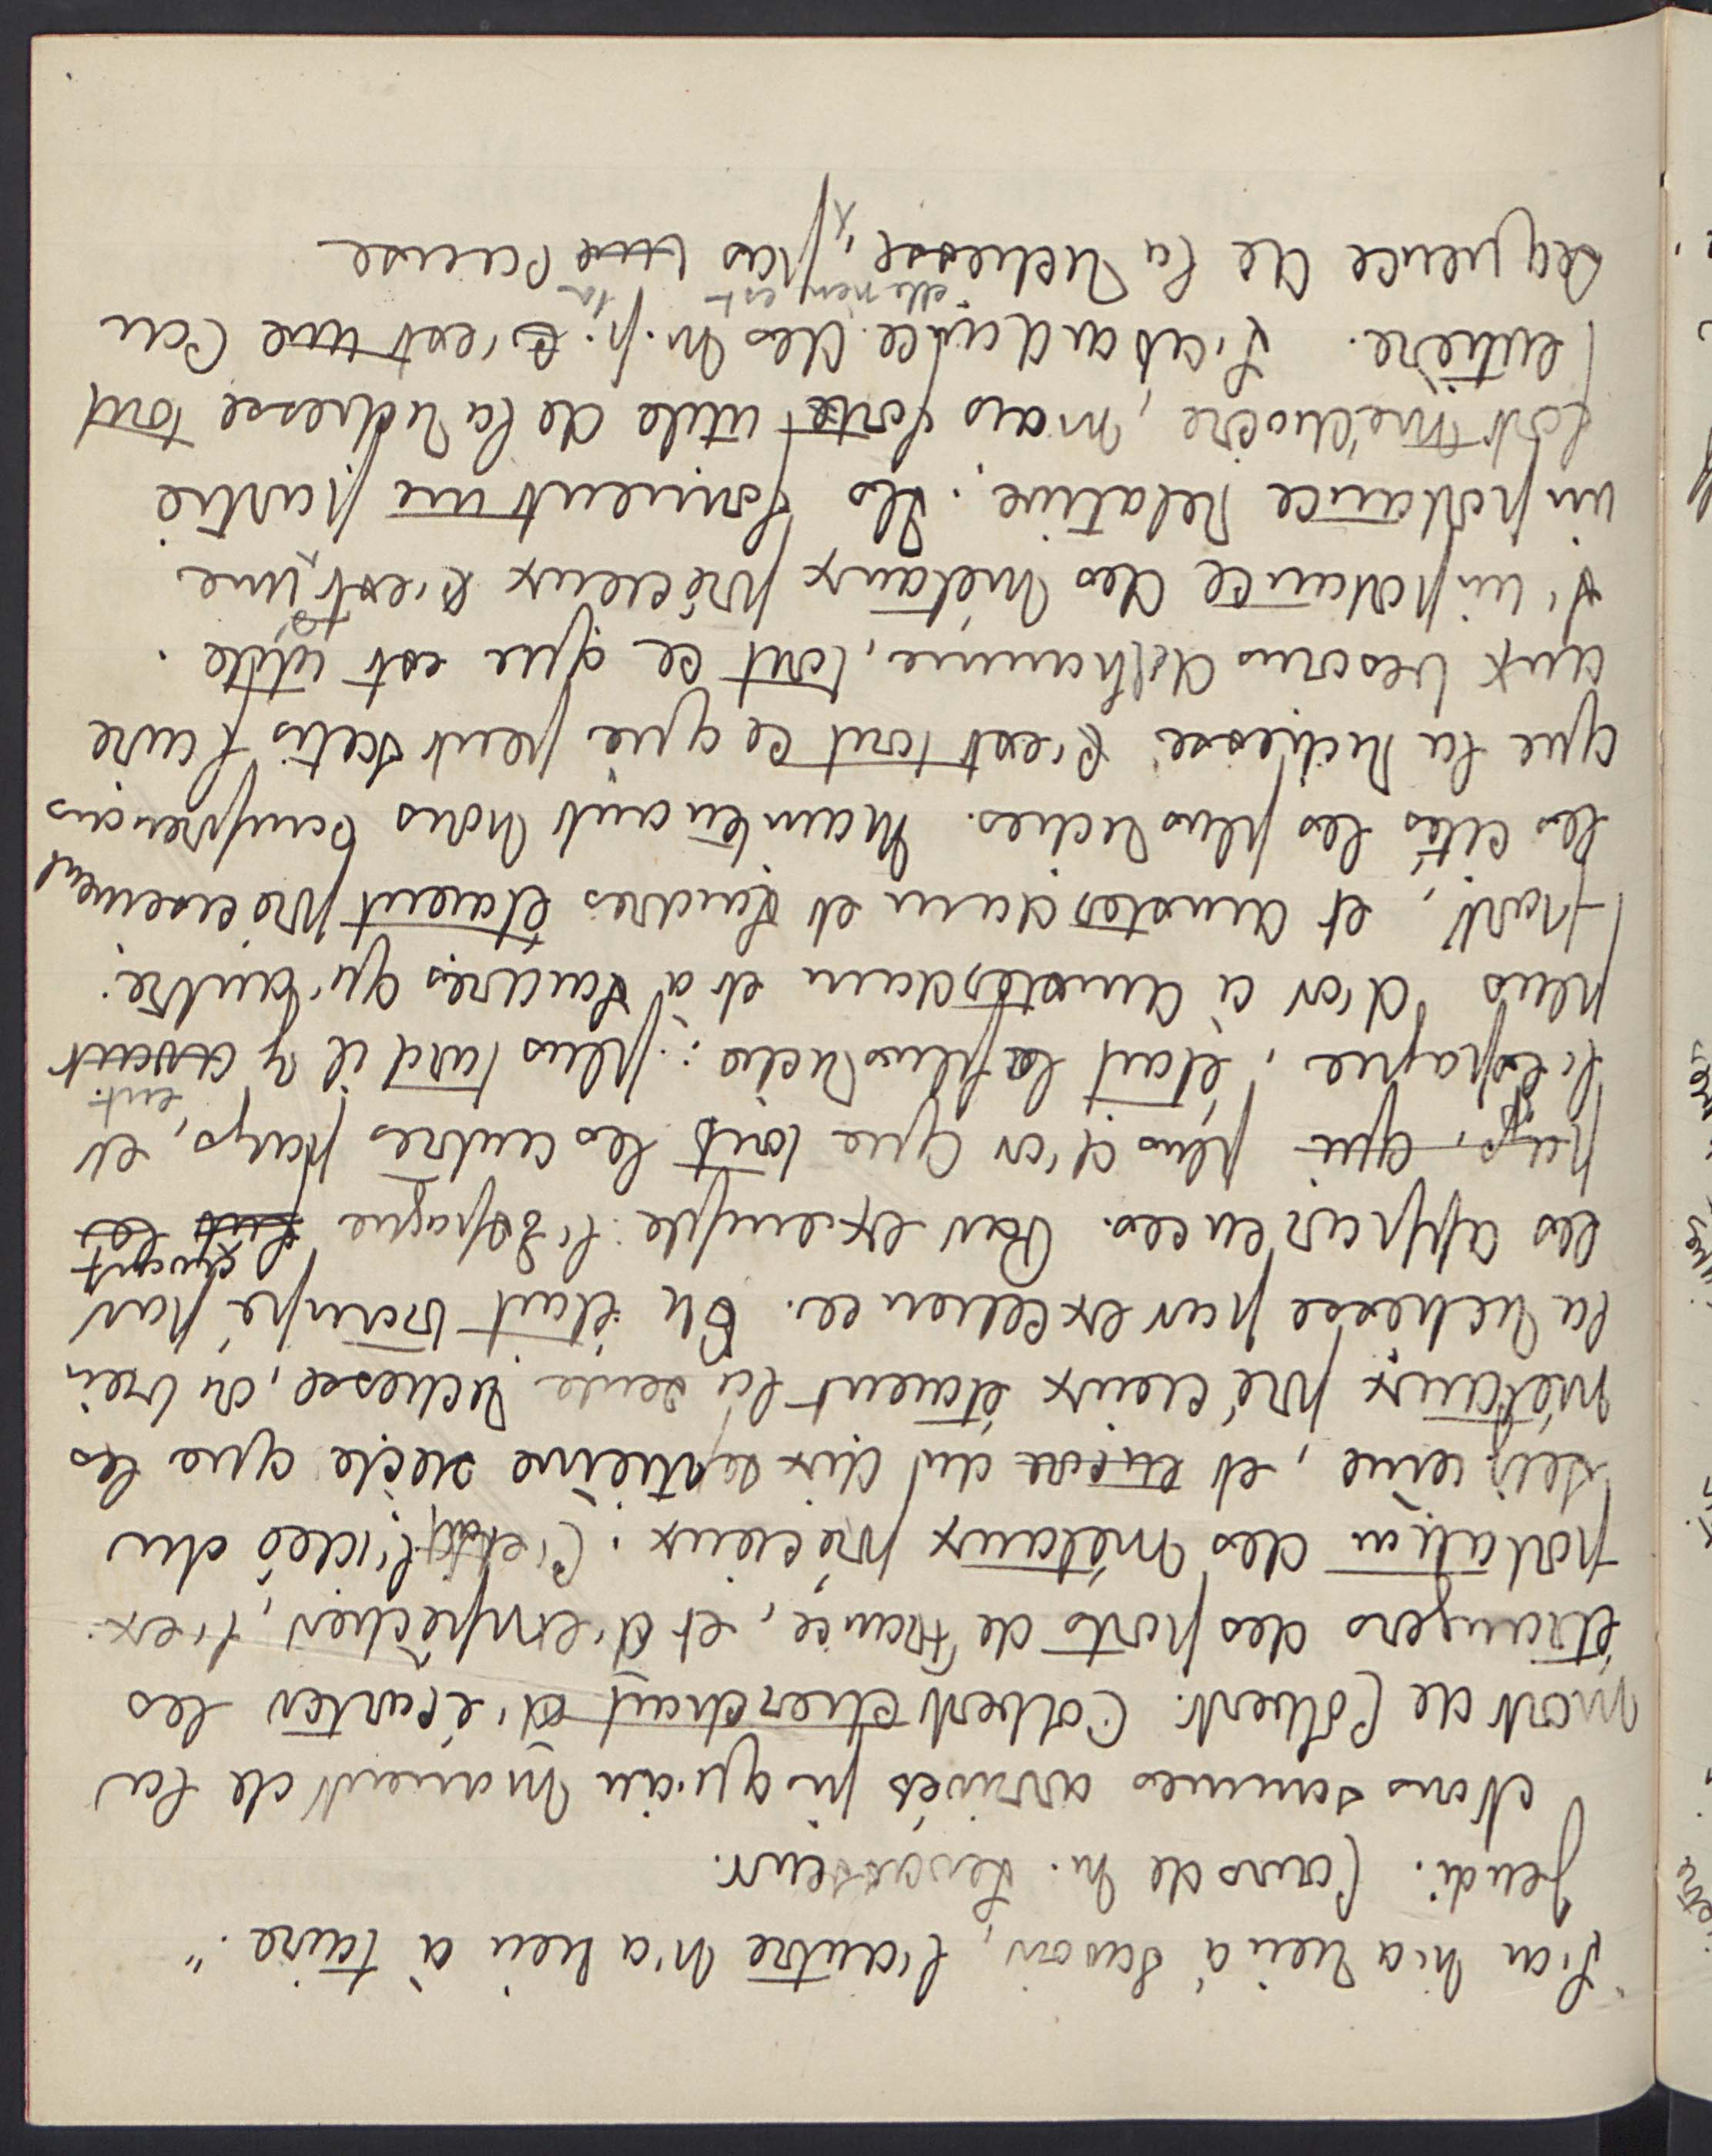 "L'un n'a rien à savoir, l'autre n'a rien à taire."
Jeudi. Cours de M. Levasseur.
Nous sommes arrivés jusqu'au moment de la
mort de Colbert. Colbert cherchait d'écarter les
étrangers des ports de France, et d'empêcher, l'ex-
portation des métaux précieux; C'était l'idée du
seizième, et encore du dix septième siècle que les
métaux précieux étaient la seule richesse, ou bien
la richesse par excellence. On était trompé par
les apparences. Par exemple l'Espagne avait
plus d'or que tous les autres pays, et
l'Espagne, était la plus riche; plus tard il y avait
plus d'or à Amsterdam et à Londres qu'autre
part, et Amsterdam et Londres étaient précisement
les cités les plus riches. Maintenant nous comprenons
que la richesse c'est tout ce qui peut satisfaire
aux besoins de l'homme, tout ce que est utile.
L'importance des métaux précieux c'est une
importance relative. Ils forment une partie
fort médiocre, mais forte utile de la richesse tout
entière. L'abondance des m.p. elle n'en est la con
séquence de la richesse, pas une cause